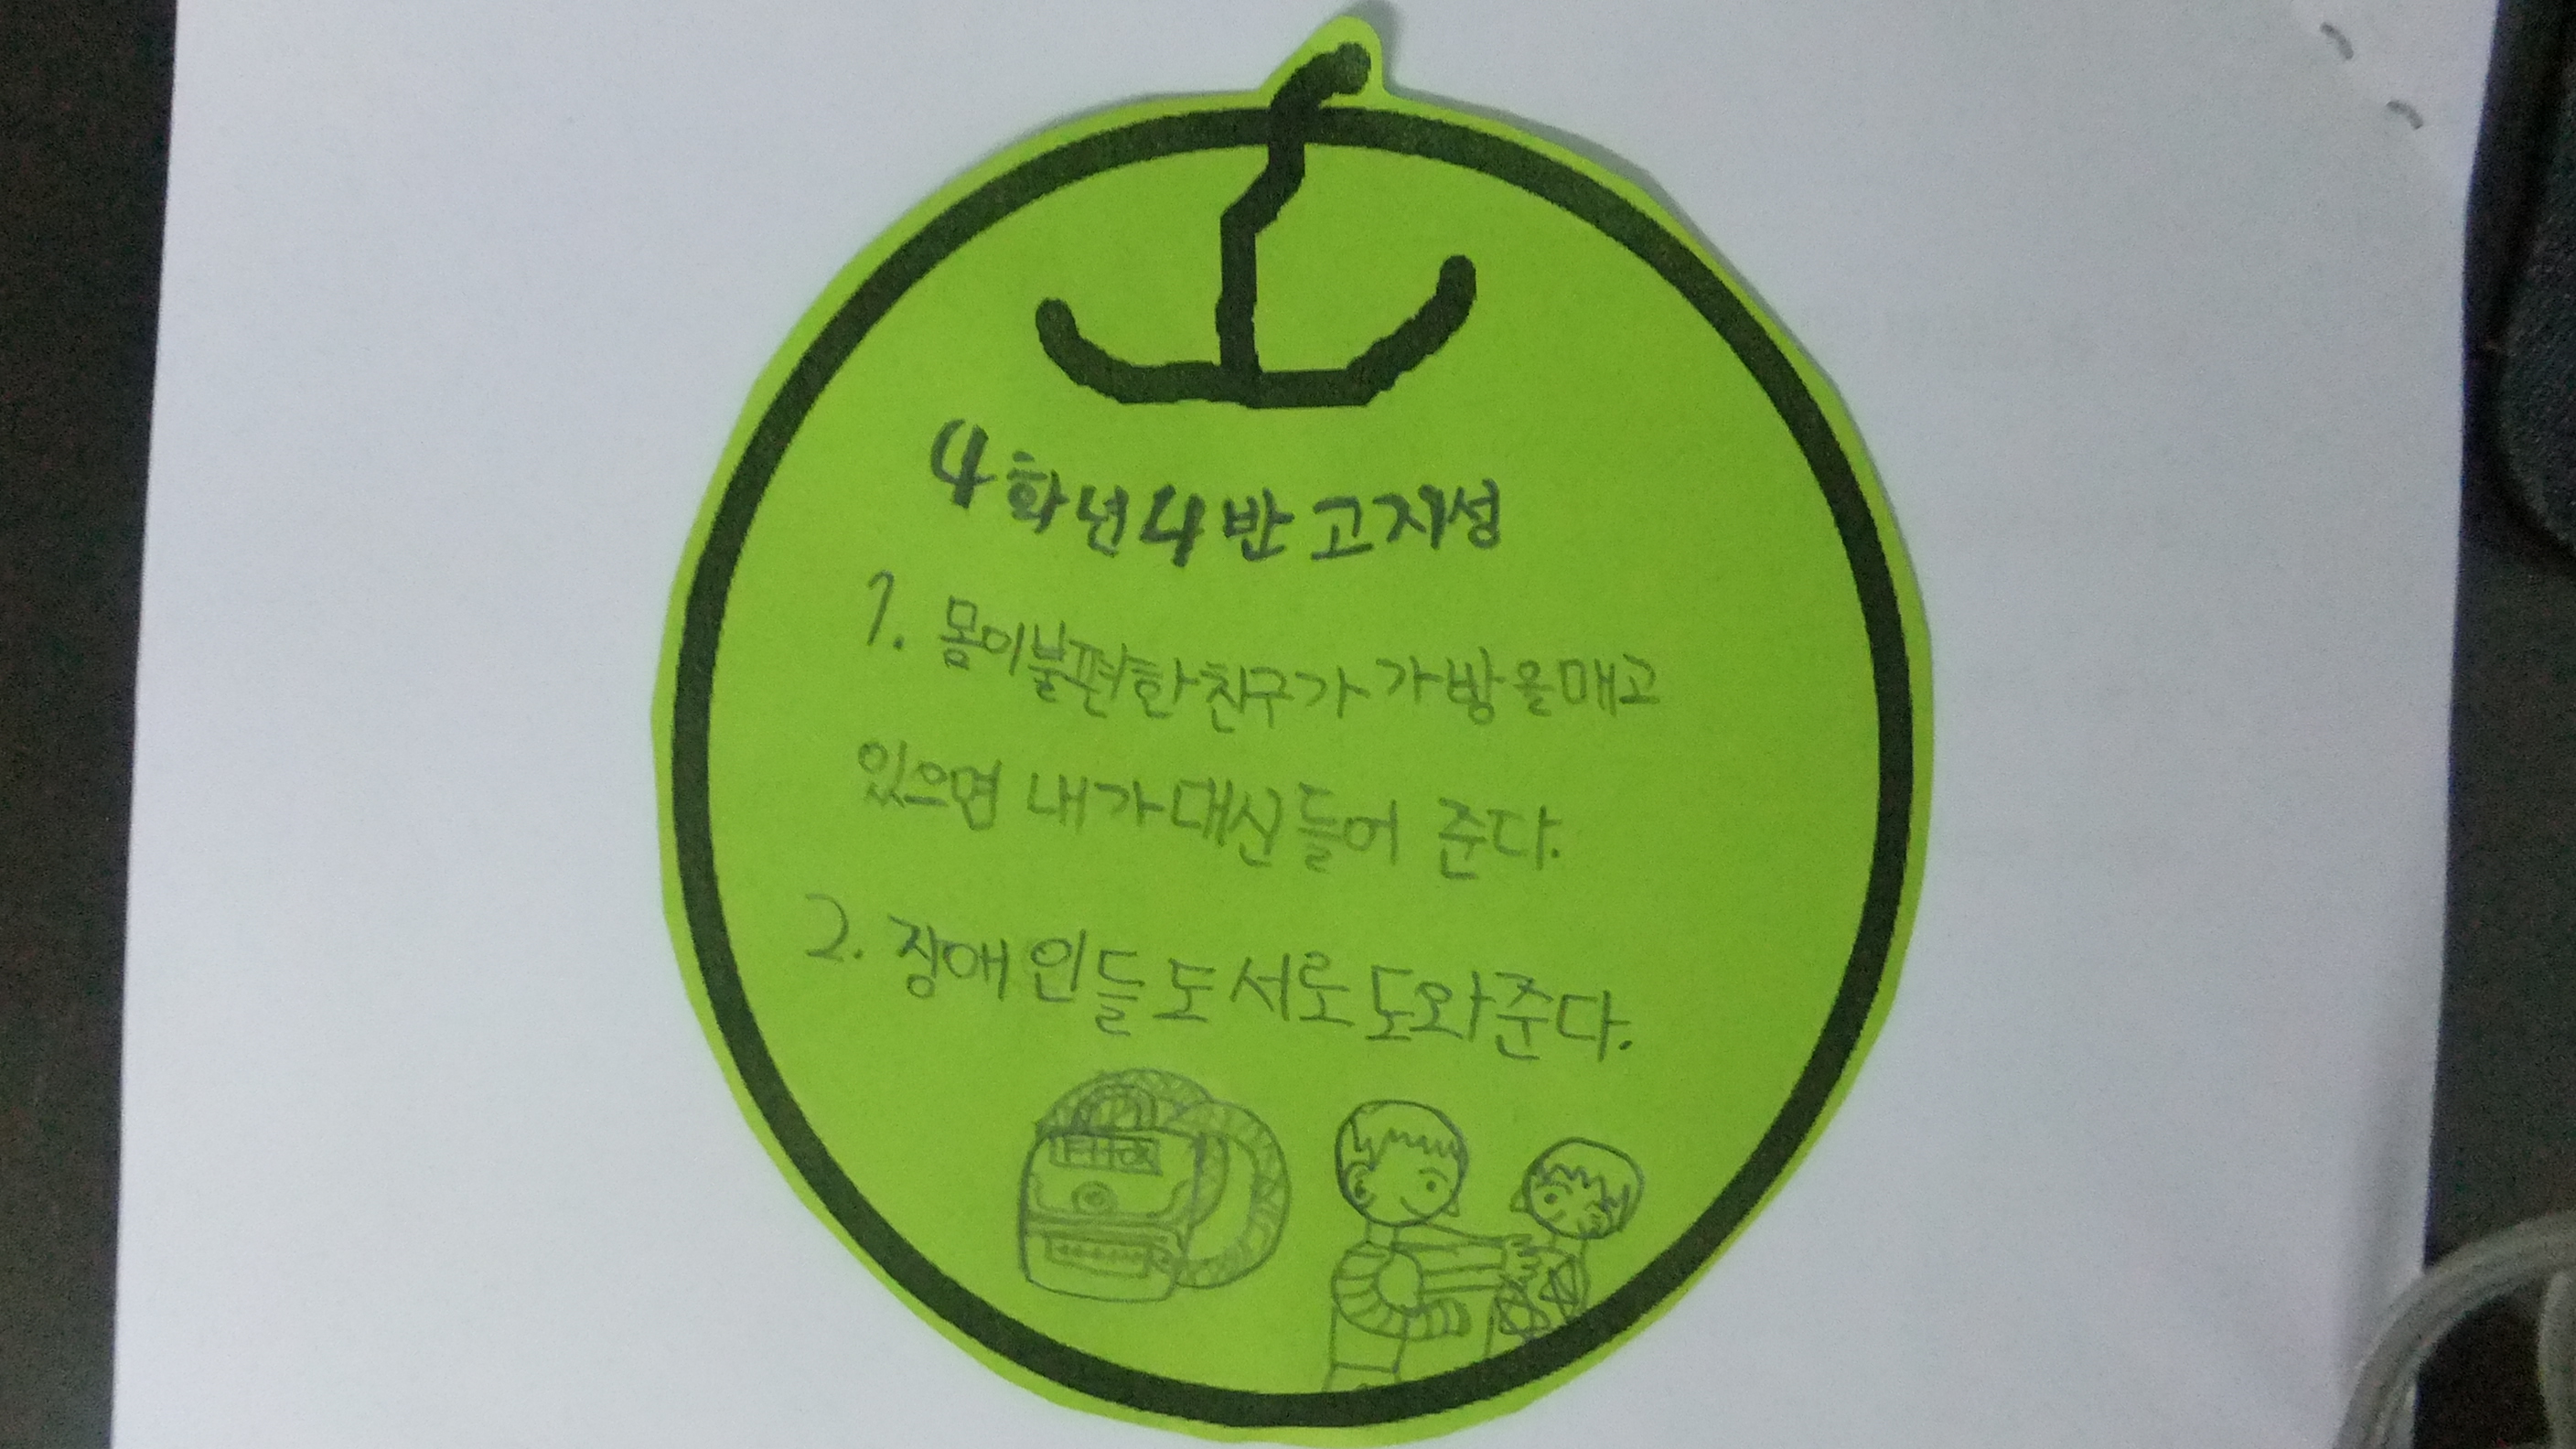 4학년 4반 고지성
1. 몸이불편한친구가 가방을매고
있으면 내가대신들어 준다.
2. 장애인들도서로도와준다.